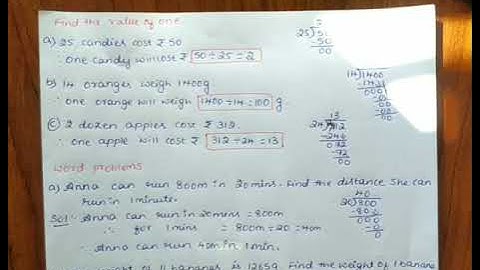 Find the value of one
a) 25 candies cost ₹ 50
∴ One candy will cost ₹ 50 ÷ 25 = 2
b) 14 oranges weigh 1400g
∴ one orange will weigh 1400 ÷ 14 = 100 g
c) 2 dozen apples cost ₹ 312
∴ one apple will cost ₹ 312 ÷ 24 = 13
Word problems
a) Anna can run 800m in 20mins. Find the distance she can
run in 1 minute.
Sol: Anna can run in 20mins = 800m
∴ for 1 mins = 800m ÷ 20 = 40m
∴ Anna can run 40m in 1 min.
weight of 11 bananas is 1265g. Find the weight of 1 banana